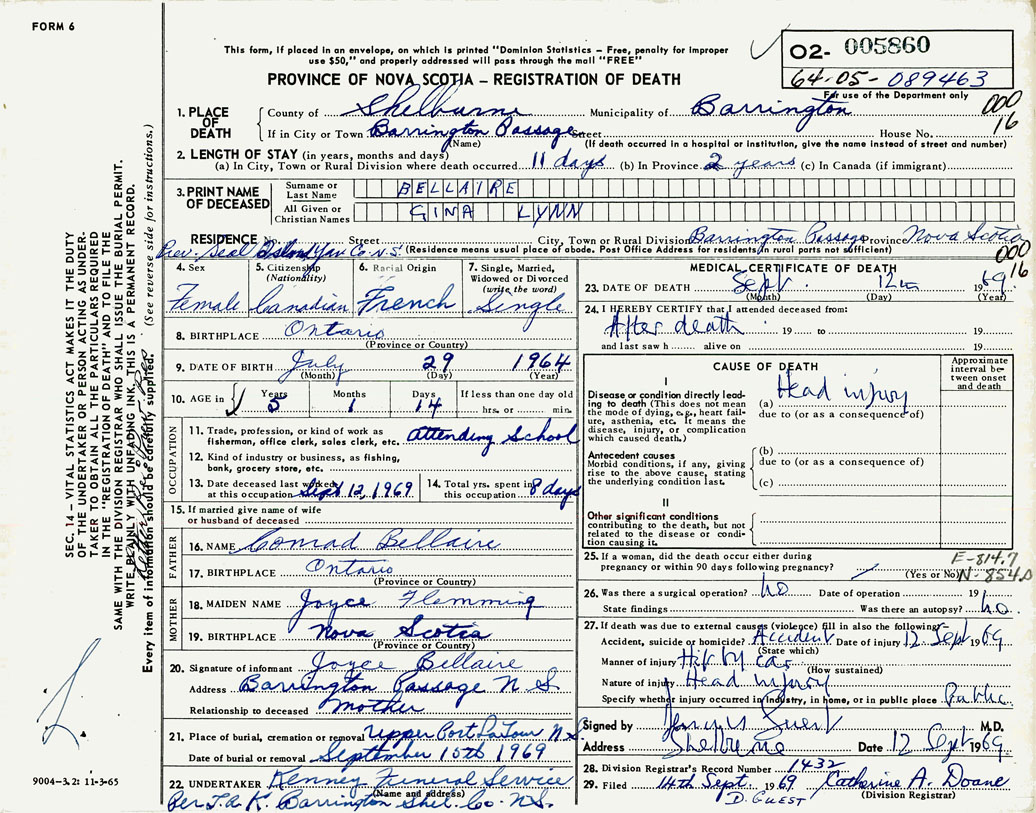 FORM 6
This form, if placed in an envelope, on which is printed "Dominion Statistics – Free, penalty for improper
use $50," and properly addressed will pass through the mail "FREE"
PROVINCE OF NOVA SCOTIA – REGISTRATION OF DEATH
02- 005860
64-05-089463
For use of the Department only
000
16
1. PLACE OF DEATH
County of Shelburne Municipality of Barrington
If in City or Town Barrington Passage Street House No.
(Name) (If death occurred in a hospital or institution, give the name instead of street and number)
2. LENGTH OF STAY (in years, months and days)
(a) In City, Town or Rural Division where death occurred 11 days (b) In Province 2 years (c) In Canada (if immigrant)
3. PRINT NAME OF DECEASED
Surname or Last Name BELLAIRE
All Given or Christian Names GINA LYNN
RESIDENCE No. Street City, Town or Rural Division Barrington Passage Province Nova Scotia
Prev. Seal Island Yar. Co. N.S. (Residence means usual place of abode. Post Office Address for residents in rural parts not sufficient)
000
16
4. Sex Female
5. Citizenship (Nationality) Canadian
6. Racial Origin French
7. Single, Married, Widowed or Divorced (write the word) Single
8. BIRTHPLACE Ontario
(Province or Country)
9. DATE OF BIRTH July 29 1964
(Month) (Day) (Year)
10. AGE in Years 5 Months 1 Days 14 If less than one day old hrs. or min.
OCCUPATION
11. Trade, profession, or kind of work as fisherman, office clerk, sales clerk, etc. attending School
12. Kind of industry or business, as fishing, bank, grocery store, etc.
13. Date deceased last worked at this occupation Sept 12, 1969
14. Total yrs. spent in this occupation 8 days
15. If married give name of wife or husband of deceased
FATHER
16. NAME Conrad Bellaire
17. BIRTHPLACE Ontario
(Province or Country)
MOTHER
18. MAIDEN NAME Joyce Flemming
19. BIRTHPLACE Nova Scotia
(Province or Country)
20. Signature of informant Joyce Bellaire
Address Barrington Passage N S
Relationship to deceased mother
21. Place of burial, cremation or removal Upper Port LaTour N.S
Date of burial or removal September 15th 1969
22. UNDERTAKER Kenney Funeral Service
(Name and address)
Per J.A K. Barrington Shel. Co. N.S.
MEDICAL CERTIFICATE OF DEATH
23. DATE OF DEATH Sept. 12th 1969
(Month) (Day) (Year)
24. I HEREBY CERTIFY that I attended deceased from:
After death 19 to 19
and last saw h alive on 19
CAUSE OF DEATH
Approximate interval between onset and death
I
Disease or condition directly leading to death (This does not mean the mode of dying, e.g., heart failure, asthenia, etc. It means the disease, injury, or complication which caused death.)
(a) Head injury
due to (or as a consequence of)
Antecedent causes
Morbid conditions, if any, giving rise to the above cause, stating the underlying condition last.
(b)
due to (or as a consequence of)
(c)
II
Other significant conditions
contributing to the death, but not related to the disease or condition causing it.
25. If a woman, did the death occur either during pregnancy or within 90 days following pregnancy?
(Yes or No)
E-814.7
N-854.0
26. Was there a surgical operation? no Date of operation 19
State findings Was there an autopsy? no.
27. If death was due to external causes (violence) fill in also the following:
Accident, suicide or homicide? Accident Date of injury 12 Sept 1969
(State which)
Manner of injury Hit by car
(How sustained)
Nature of injury Head injury
Specify whether injury occurred in industry, in home, or in public place Public
Signed by M.D.
Address Shelburne Date 12 Sept 1969
28. Division Registrar's Record Number 1432
29. Filed 14th Sept. 1969 Catherine A. Doane
(Division Registrar)
D. GUEST
SEC. 14 – VITAL STATISTICS ACT MAKES IT THE DUTY
OF THE UNDERTAKER OR PERSON ACTING AS UNDER-
TAKER TO OBTAIN ALL THE PARTICULARS REQUIRED
IN THE "REGISTRATION OF DEATH" AND TO FILE THE
SAME WITH THE DIVISION REGISTRAR WHO SHALL ISSUE THE BURIAL PERMIT.
WRITE PLAINLY WITH UNFADING INK. THIS IS A PERMANENT RECORD.
Every item of information should be carefully supplied. (See reverse side for instructions.)
9004-3.2: 11-3-65